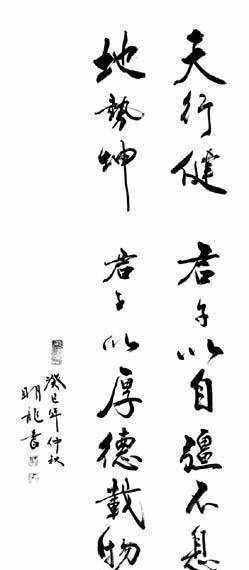 天行健 君子以自彊不息
地勢坤 君子以厚德載物
癸巳年仲秋
明龍書